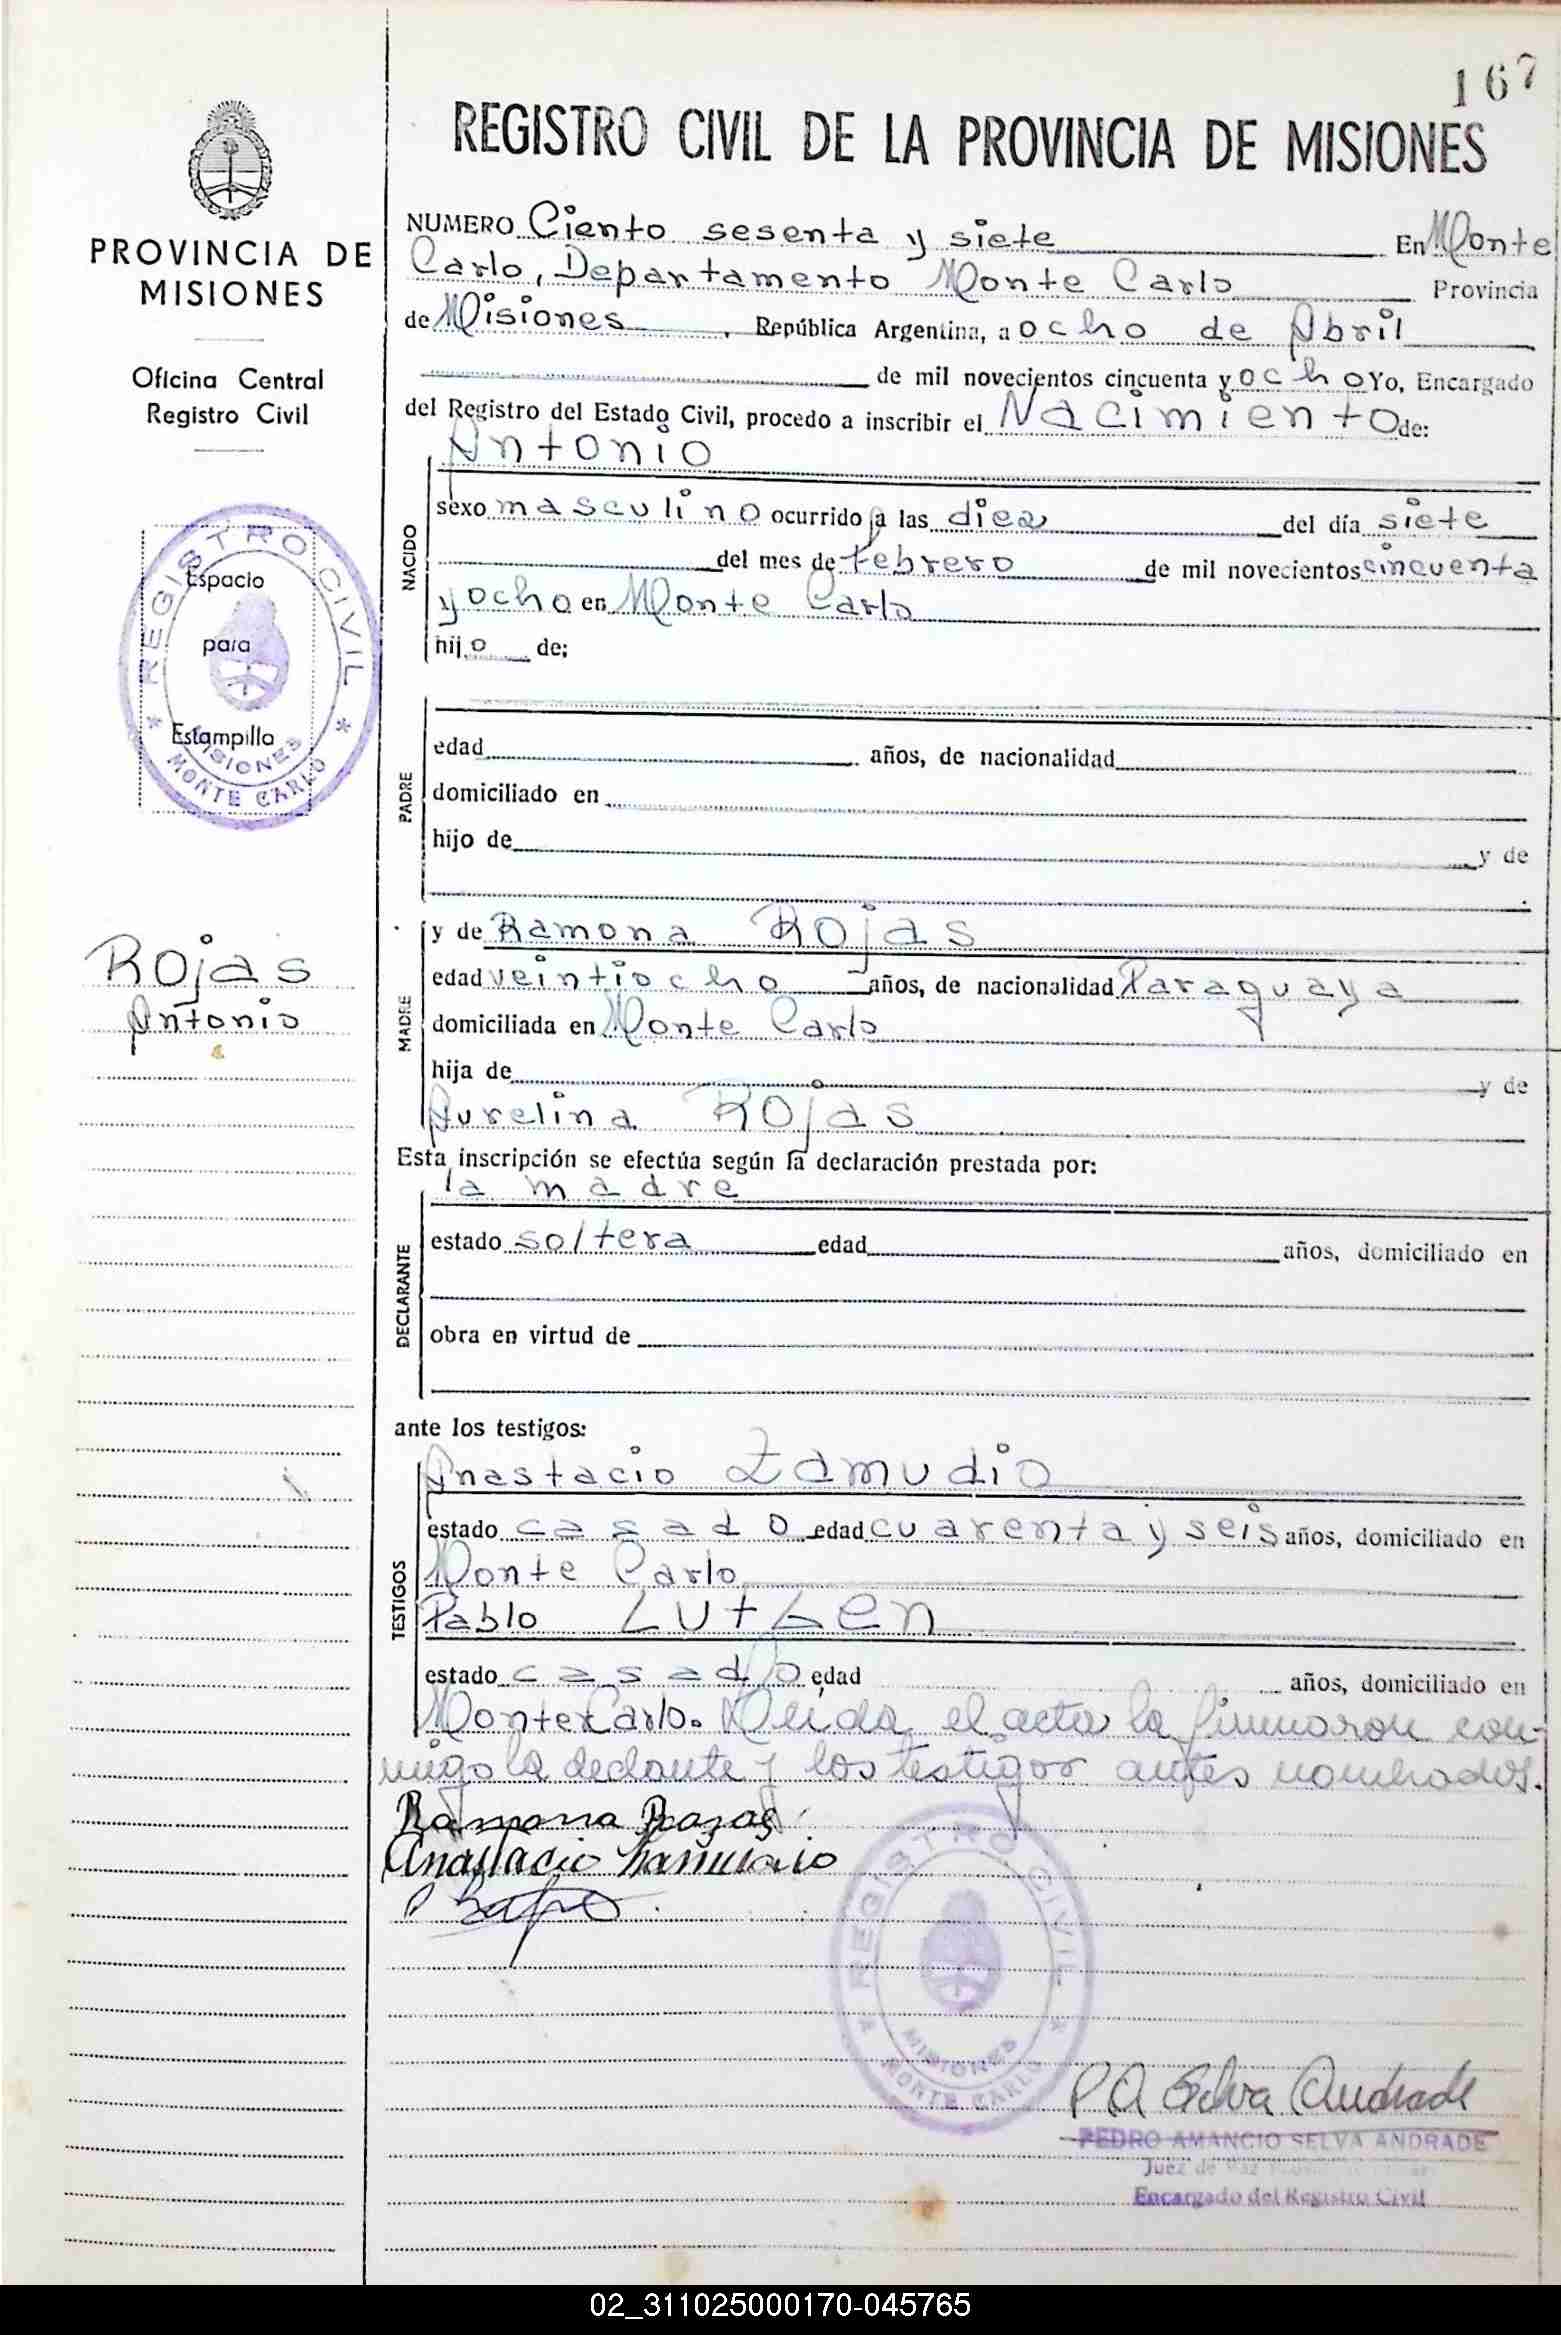 167
REGISTRO CIVIL DE LA PROVINCIA DE MISIONES
PROVINCIA DE
MISIONES
Oficina Central
Registro Civil
REGISTRO CIVIL
Espacio
para
Estampilla
MISIONES
MONTE CARLO
Rojas
Antonio
NUMERO Ciento sesenta y siete En Monte
Carlo, Departamento Monte Carlo Provincia
de Misiones, República Argentina, a ocho de Abril
de mil novecientos cincuenta y ocho Yo, Encargado
del Registro del Estado Civil, procedo a inscribir el Nacimiento de:
NACIDO
Antonio
sexo masculino ocurrido a las diez del día siete
del mes de febrero de mil novecientos cincuenta
y ocho en Monte Carlo
hijo de:
PADRE
edad años, de nacionalidad
domiciliado en
hijo de y de
MADRE
y de Ramona Rojas
edad veintiocho años, de nacionalidad Paraguaya
domiciliada en Monte Carlo
hija de y de
Aurelina Rojas
Esta inscripción se efectúa según la declaración prestada por:
DECLARANTE
la madre
estado soltera edad años, domiciliado en
obra en virtud de
ante los testigos:
TESTIGOS
Anastacio Zamudio
estado casado edad cuarenta y seis años, domiciliado en
Monte Carlo
Pablo
estado casado edad años, domiciliado en
Monte Carlo. Leida el acta la firmaron con-
migo la declante y los testigos antes nombrados.
Ramona Rojas
Anastacio Zamudio
REGISTRO CIVIL
MISIONES
MONTE CARLO
P A Selva Andrade
PEDRO AMANCIO SELVA ANDRADE
Juez de Paz
Encargado del Registro Civil
02_311025000170-045765